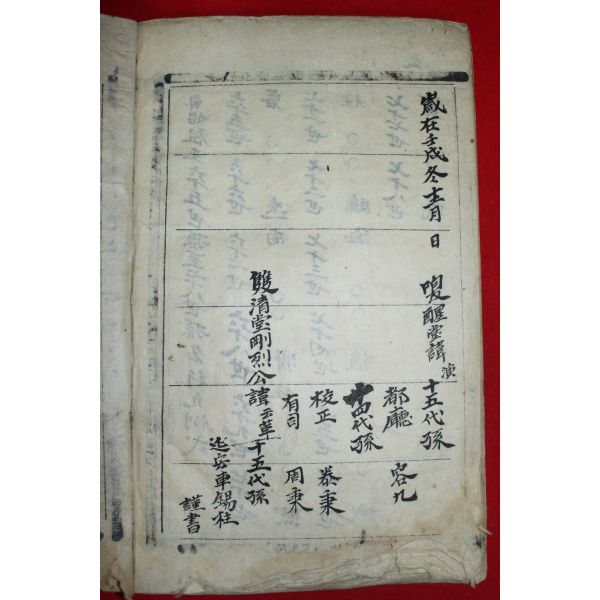 歲在壬戌冬十二月 日
醒堂諱演十五代孫
都廳 容九
十四代孫
校正 泰秉
有司 周秉
雙清堂剛烈公諱云革十五代孫
延安車錫柱
謹書